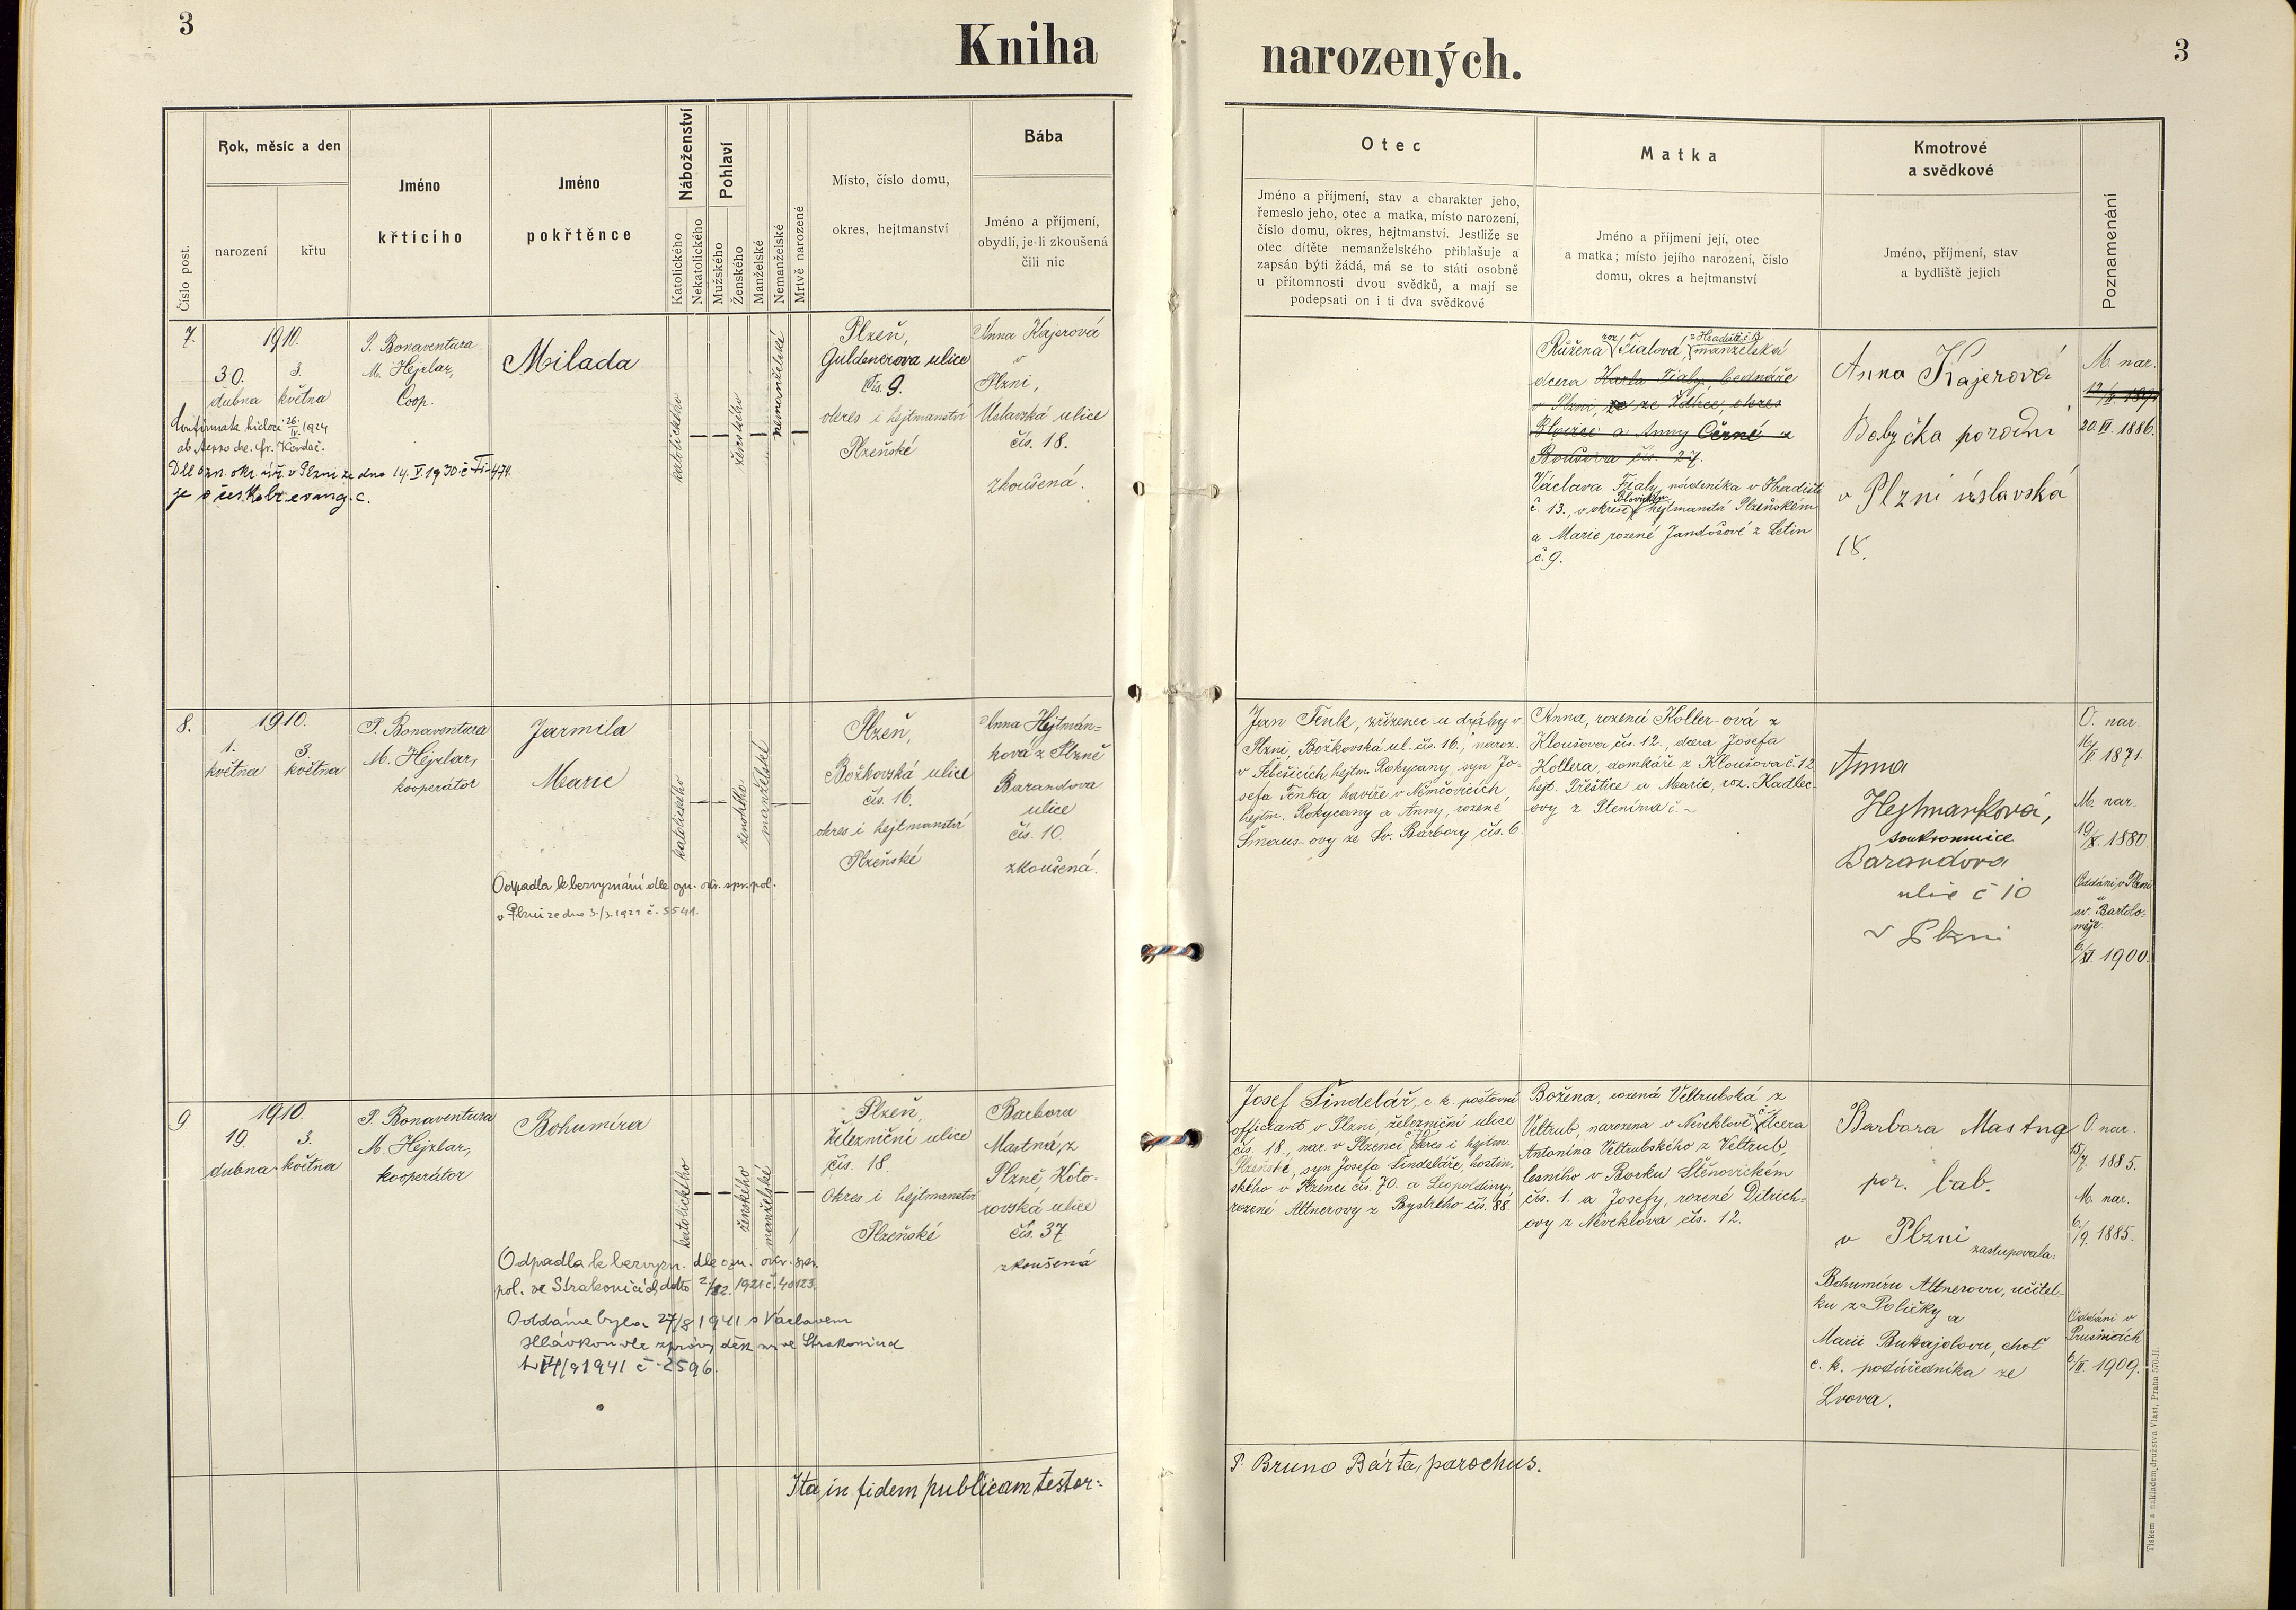 3
Kniha
narozených.
3
Číslo post.
Rok, měsíc a den
narození
křtu
Jméno
křtícího
Jméno
pokřtěnce
Náboženství
Katolického
Nekatolického
Pohlaví
Mužského
Ženského
Manželské
Nemanželské
Mrtvě narozené
Místo, číslo domu,
okres, hejtmanství
Bába
Jméno a příjmení,
obydlí, je-li zkoušená
čili nic
Otec
Jméno a příjmení, stav a charakter jeho,
řemeslo jeho, otec a matka, místo narození,
číslo domu, okres, hejtmanství. Jestliže se
otec dítěte nemanželského přihlašuje a
zapsán býti žádá, má se to státi osobně
u přítomnosti dvou svědků, a mají se
podepsati on i ti dva svědkové
Matka
Jméno a příjmení její, otec
a matka; místo jejího narození, číslo
domu, okres a hejtmanství
Kmotrové
a svědkové
Jméno, příjmení, stav
a bydliště jejich
Poznamenání
7.
1910.
30.
dubna
3.
května
P. Bonaventura
M. Hejzlar,
Coop.
Milada
katolického
ženského
nemanželské
Plzeň,
Guldenerova ulice
čís. 9.
okres i hejtmanství
Plzeňské
Anna Kajerová
v
Plzni,
Úslavská ulice
čís. 18.
zkoušená.
26/IV. 1924
Dle ozn. okr. úř. v Plzni ze dne 14. V. 1930 č.
je českobr. evang. c.
Růžena roz. Fialová, z Hradiště č. 13 manželská
dcera Karla Fialy, bednáře
v Plzni, ze Zdice, okres
a Anny Černé z
čís. 27.
Václava Fialy, nádeníka v Hradišti
č. 13., v okrese Blovickém hejtmanství Plzeňském
a Marie rozené Jandošové z Letin
č. 9.
Anna Kajerová
Babyčka porodní
v Plzni úslavská
18.
M. nar.
20. IV. 1886.
8.
1910.
1.
května
3.
května
P. Bonaventura
M. Hejzlar,
kooperátor
Jarmila
Marie
katolického
ženského
manželské
Plzeň,
Božkovská ulice
čís. 16.
okres i hejtmanství
Plzeňské
Anna Hejtmán-
ková z Plzně
Barandova
ulice
čís. 10.
zkoušená.
Odpadla k bezvyznání dle ozn. okr. spr. pol.
v Plzni ze dne 3./3. 1921 č. 5541.
Jan Tenk, zřízenec u dráhy v
Plzni, Božkovská ul. čís. 16., naroz.
v Sebečicích, hejtm. Rokycany, syn Jo-
sefa Tenka havíře v Němčovicích,
hejtm. Rokycany a Anny, rozené
Šmaus-ovy ze Sv. Barbory čís. 6.
Anna, rozená Koller-ová z
Kloušova čís. 12., dcera Josefa
Kollera, domkáře z Kloušova č. 12
hejt. Přeštice a Marie, roz. Kadlec-
ovy z Ptenína č –
Anna
Hejtmanková,
soukromnice
Barandova
ulic č 10
v Plzni
O. nar.
1871.
M. nar.
19/X. 1880.
Oddáni v Plzni
u
sv. Bartolo-
měje.
6/XI. 1900.
9
1910.
19.
dubna
3.
května
P. Bonaventura
M. Hejzlar,
kooperátor
Bohumíra
katolického
ženského
manželské
Plzeň,
Železniční ulice
čís. 18.
okres i hejtmanství
Plzeňské
Barbora
Mastná, z
Plzně, Koto-
rovská ulice
čís. 37.
zkoušená
Odpadla k bezvyzn. dle ozn. okr. spr.
pol. ve Strakonicích ddto 2/12. 1921 č. 40123.
Oddána byla 27/8 1941 s Václavem
Hlávkou dle zprávy děk. ve Strakonicích
1941 č. 2596.
Josef Šindelář, c. k. poštovní
officiant v Plzni, železniční ulice
čís. 18., nar. v Plzenci č. 70 okres i hejtm.
Plzeňské, syn Josefa Šindeláře, hostin-
ského v Plzenci čís. 70. a Leopoldiny,
rozené Altnerovy z Bystrého čís. 88.
Božena, rozená Veltrubská z
Veltrub, narozena v Neveklově dcera
Antonína Veltrubského z Veltrub,
lesního v Borku Štěnovickém
čís. 1. a Josefy, rozené Ditrich-
ovy z Neveklova čís. 12.
Barbara Mastna
por. bab.
v Plzni
zastupovala:
Bohumíru Altnerovu, učitel-
ku z Poličky a
Marii Bukajolovu, choť
c. k. podúředníka ze
Lvova.
O. nar.
15/7. 1885.
M. nar.
6/9. 1885.
Oddáni v
Prusinách
1909.
Ita in fidem publicam testor:
P. Bruno Bárta, parochus.
Tiskem a nakladem družstva Vlast, Praha 570-II.